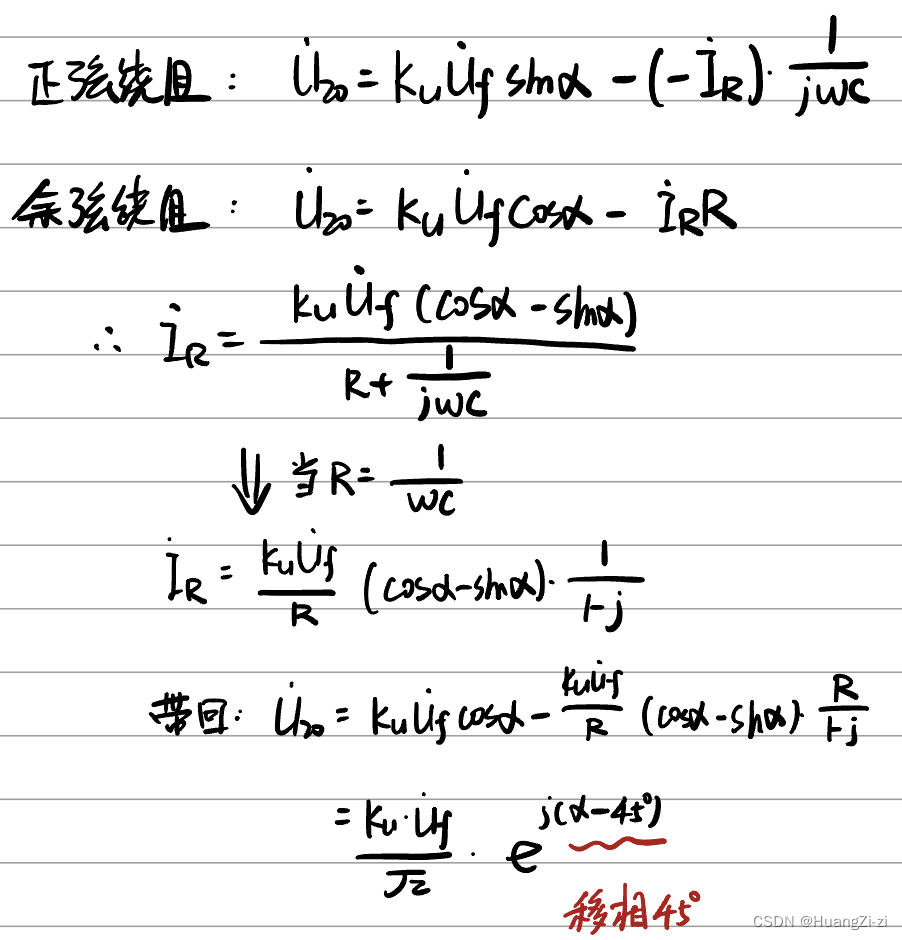 正弦绕组: U̇₂₀ = kᵤU̇f sinα - (-İ_R)· 1/(jwc)
余弦绕组: U̇₂₀ = kᵤU̇f cosα - İ_R R
∴ İ_R = kᵤU̇f (cosα - sinα) / (R + 1/(jwc))
⇓ 当R = 1/(wc)
İ_R = kᵤU̇f/R (cosα-sinα)· 1/(1-j)
带回: U̇₂₀ = kᵤU̇f cosα - kᵤU̇f/R (cosα-sinα)· R/(1-j)
= kᵤ·U̇f/√2 · e^{j(α-45°)}
移相45°
CSDN @HuangZi-zi